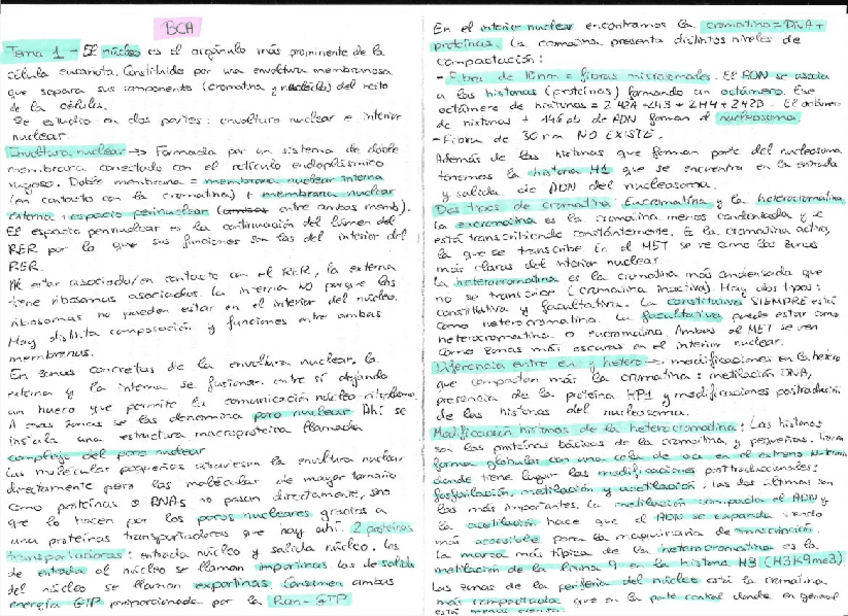 BCA
Tema 1 - El núcleo es el orgánulo más prominente de la
célula eucariota. Constituido por una envoltura membranosa
que separa sus componentes (cromatina y nucléolo) del resto
de la célula.
Se estudia en dos partes: envoltura nuclear e interior
nuclear.
Envoltura nuclear → Formada por un sistema de doble
membrana conectado con el retículo endoplásmico
rugoso. Doble membrana = membrana nuclear interna
(en contacto con la cromatina) + membrana nuclear
externa + espacio perinuclear ( entre ambas memb).
El espacio perinuclear es la continuación del lúmen del
RER por lo que sus funciones son las del interior del
RER.
Al estar asociado/en contacto con el RER, la externa
tiene ribosomas asociados. La interna NO porque los
ribosomas no pueden estar en el interior del núcleo.
Hay distinta composición y funciones entre ambas
membranas.
En zonas concretas de la envoltura nuclear, la
externa y la interna se fusionan entre sí dejando
un hueco que permite la comunicación núcleo-citoplasma
A esas zonas se las denomina poro nuclear. Ahí se
instala una estructura macroproteica llamada
complejo del poro nuclear
Las moléculas pequeñas atraviesan la envoltura nuclear
directamente pero las moléculas de mayor tamaño
como proteínas o RNAs no pasan directamente, sino
que lo hacen por los poros nucleares gracias a
una proteínas transportadoras que hay ahí. 2 proteínas
transportadoras: entrada núcleo y salida núcleo. Las
de entrada al núcleo se llaman importinas las de salida
del núcleo se llaman exportinas. Consumen ambas
energía GTP proporcionada por la Ran-GTP
En el interior nuclear encontramos la cromatina = DNA +
proteínas. La cromatina presenta distintos niveles de
compactación:
- Fibra de 10nm = fibras nucleosomales. El ADN se asocia
a las histonas (proteínas) formando un octámero. Ese
octámero de histonas = 2H2A + 2H3 + 2H4 + 2H2B. El octámero
de histonas + 146 pb de ADN forman el nucleosoma.
- Fibra de 30nm NO EXISTE.
Además de las histonas que forman parte del nucleosoma
tenemos la histona H1 que se encuentra en la entrada
y salida de ADN del nucleosoma.
Dos tipos de cromatina: Eucromatina y la heterocromatina
La eucromatina es la cromatina menos condensada y se
está transcribiendo constantemente. Es la cromatina activa,
la que se transcribe. En el MET se ve como las zonas
más claras del interior nuclear.
La heterocromatina es la cromatina más condensada que
no se transcribe (cromatina inactiva). Hay dos tipos:
constitutiva y facultativa. La constitutiva SIEMPRE está
como heterocromatina. La facultativa puede estar como
heterocromatina o eucromatina. Ambas al MET se ven
como zonas más oscuras en el interior nuclear.
Diferencia entre eu y hetero → modificaciones en la hetero
que compactan más la cromatina: metilación DNA,
presencia de la proteína HP1 y modificaciones postraducción
de las histonas del nucleosoma.
Modificación histonas de la heterocromatina: Las histonas
son las proteínas básicas de la cromatina y pequeñas. Tienen
forma globular con una cola de aa en el extremo N-terminal
donde tiene lugar las modificaciones posttraduccionales:
fosforilación, metilación y acetilación, las dos últimas son
las más importantes. La metilación compacta el ADN y
la acetilación hace que el ADN se expanda siendo
más accesible para la maquinaria de transcripción.
La marca más típica de la heterocromatina es la
metilación de la lisina 9 en la histona H3 (H3K9me3)
Las zonas de la periferia del núcleo está la cromatina
más compactada que en la parte central donde en general
está menos